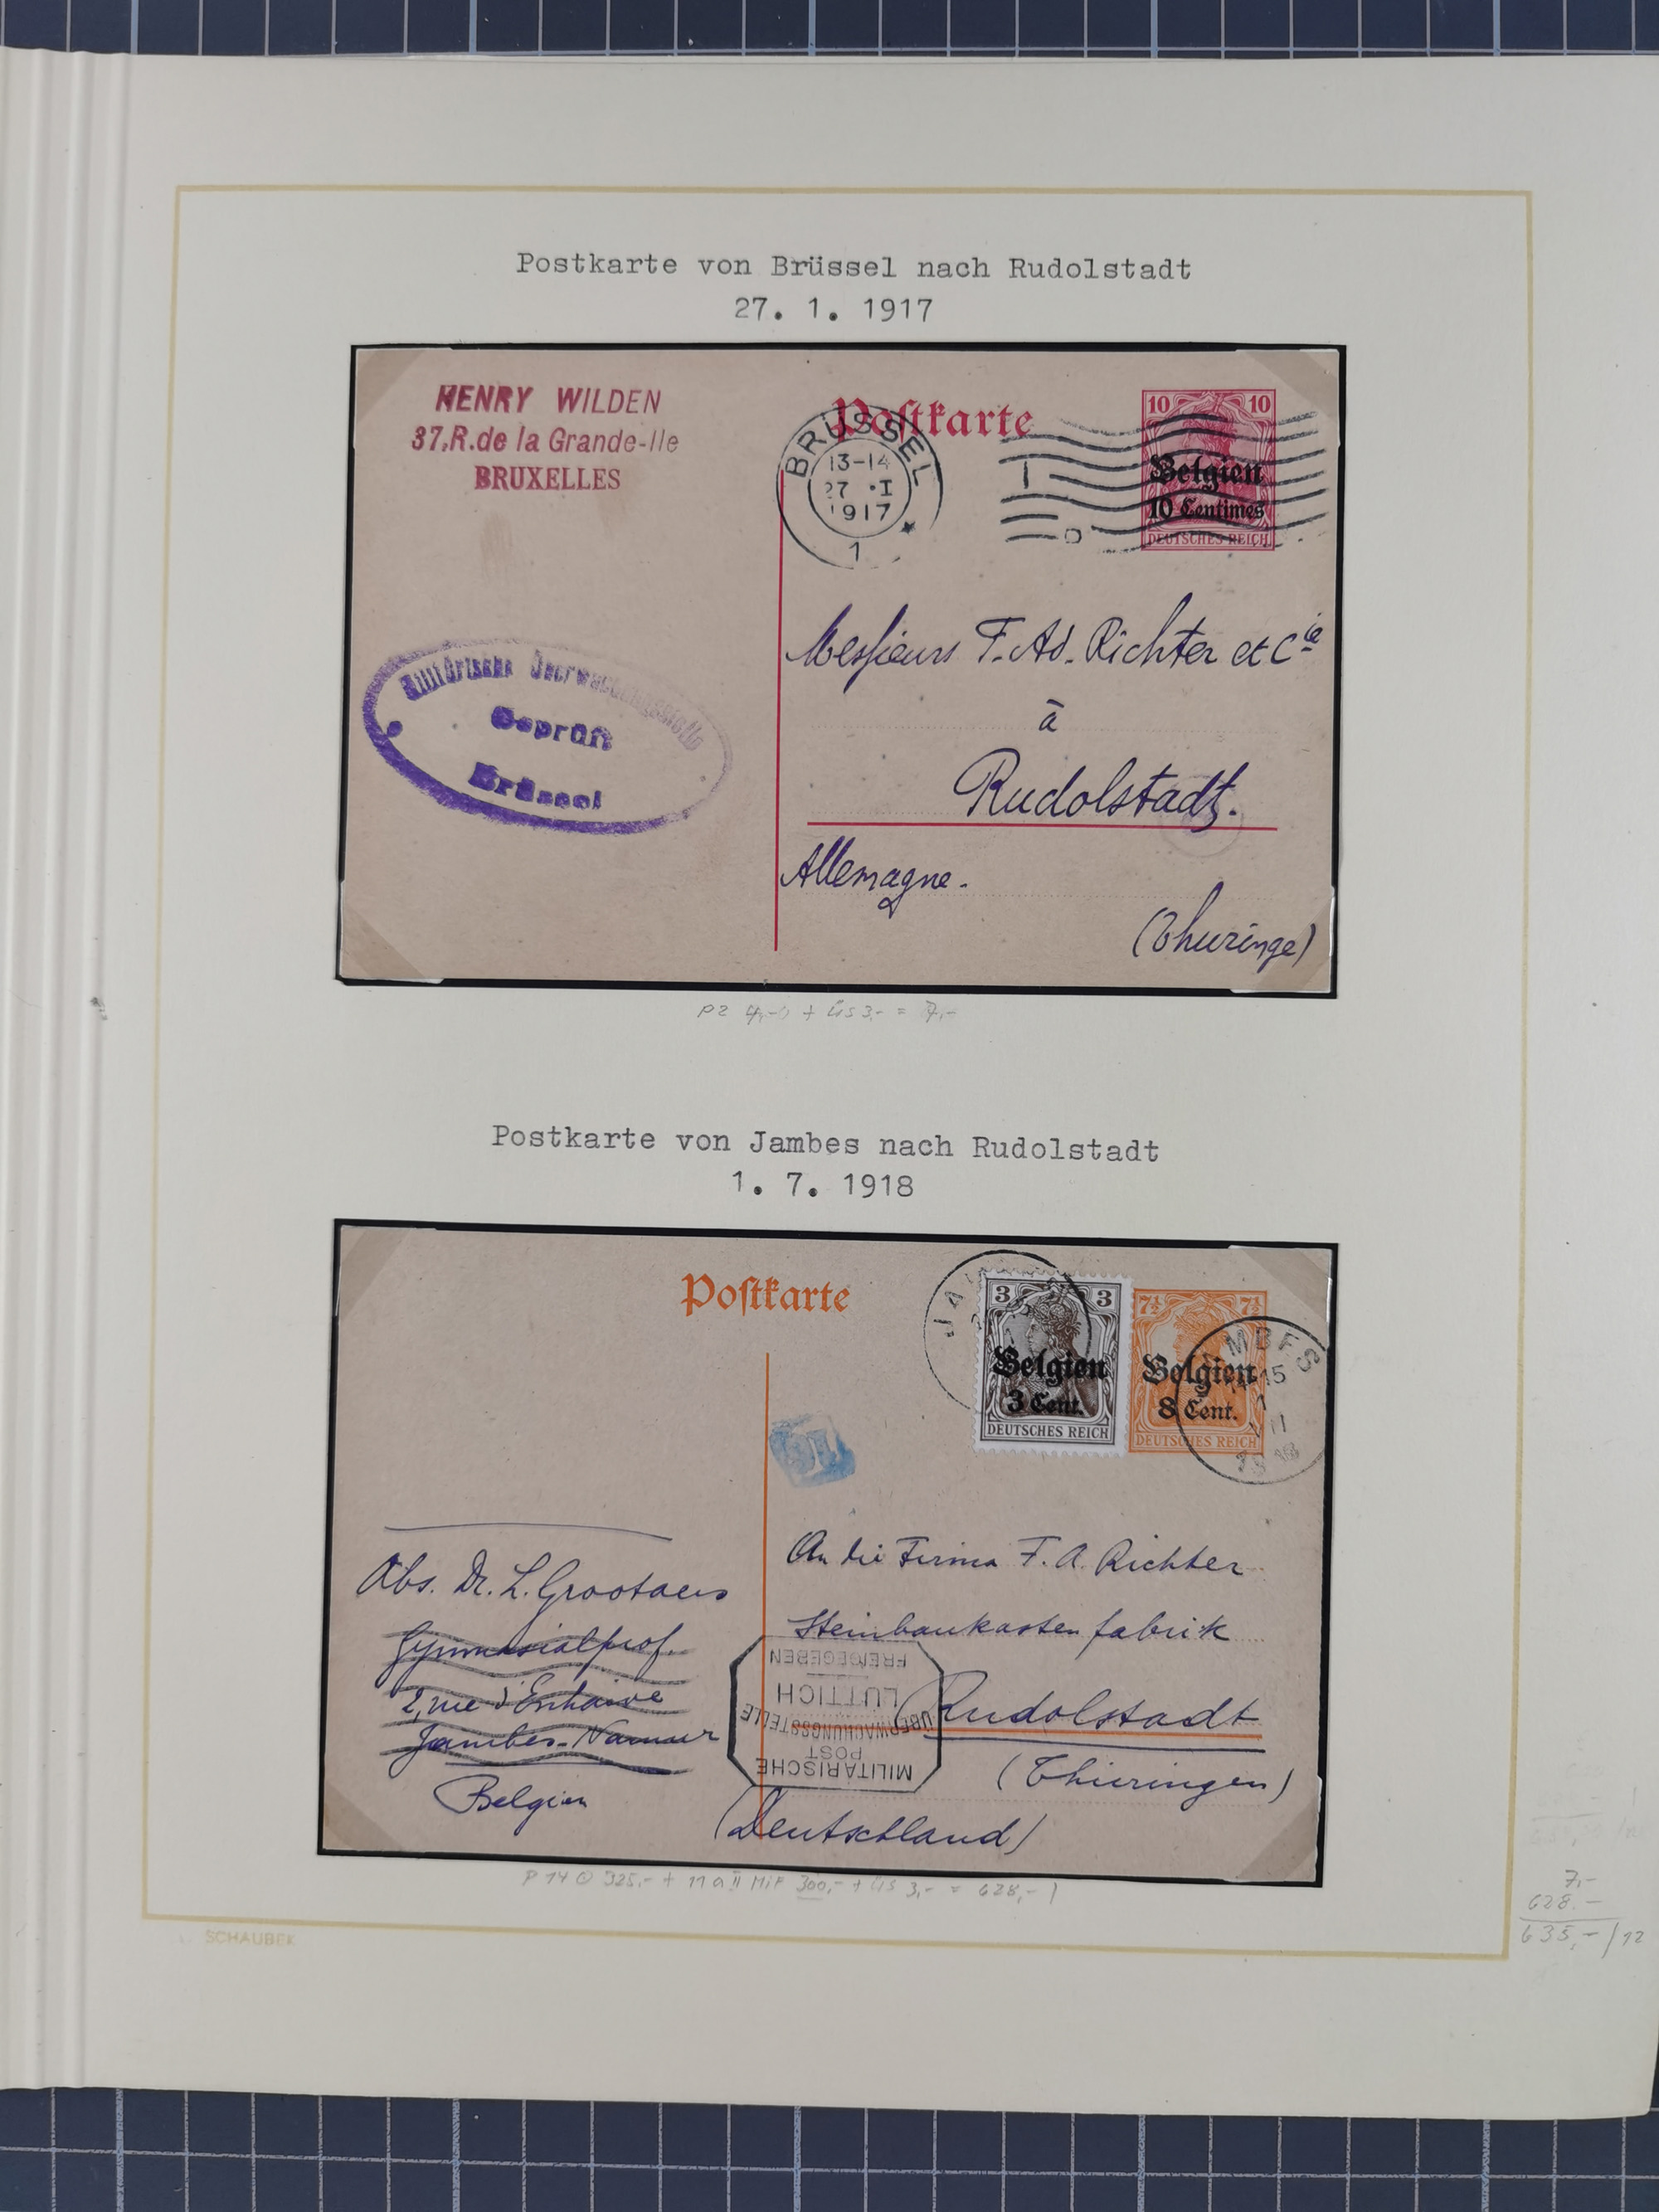 Postkarte von Brüssel nach Rudolstadt
27. 1. 1917
HENRY WILDEN
37,R.de la Grande-Ile
BRUXELLES
Postkarte
BRÜSSEL
13-14
27 ·I
1917
1
10 10
Belgien
10 Centimes
DEUTSCHES REICH
Messieurs F. Ad. Richter et Cie
à
Rudolstadt.
Allemagne.
(Thuringe)
Militärische Überwachungsstelle
Geprüft
Brüssel
P2 4,- + ÜS 3,- = 7,-
Postkarte von Jambes nach Rudolstadt
1. 7. 1918
Postkarte
3 3
Belgien
3 Cent.
DEUTSCHES REICH
7½ 7½
Belgien
8 Cent.
DEUTSCHES REICH
An die Firma F. A. Richter
Steinbaukastenfabrik
Rudolstadt
(Thüringen)
(Deutschland)
Abs. Dr. L. Grootaers
Gymnasialprof.
2, rue d'Enhaive
Jambes-Namur
Belgien
MILITÄRISCHE
POST
ÜBERWACHUNGSSTELLE
LÜTTICH
FREIGEGEBEN
P 14 325,- + 11 a II MiF 300,- + ÜS 3,- = 628,-
7,-
628.-
635,-/12
SCHAUBEK